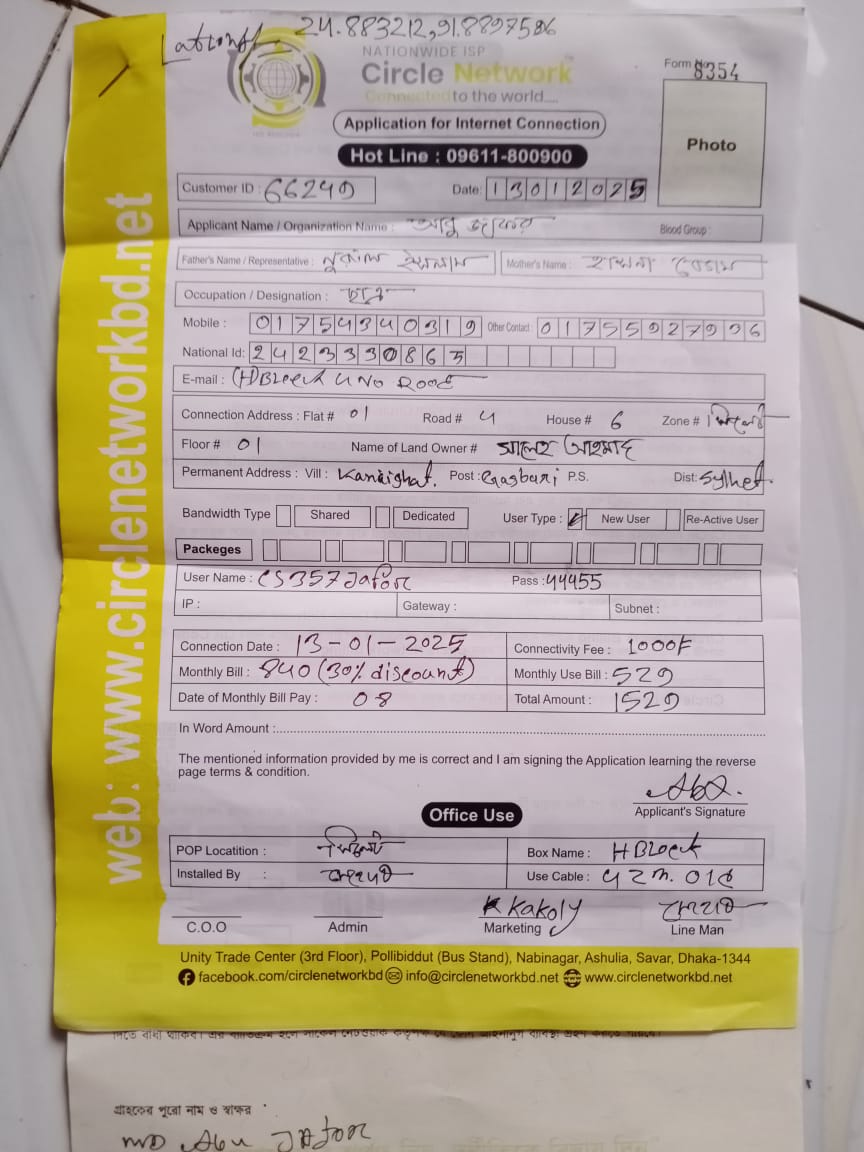 Lationg 24.883212,91.8897586
NATIONWIDE ISP
Circle Network
Connected to the world....
Form No 8354
Application for Internet Connection
Photo
Hot Line : 09611-800900
Customer ID : 66249 Date: 13012025
Applicant Name / Organization Name : আবু জাফর Blood Group :
Father's Name / Representative : নুরুল ইসলাম Mother's Name : বেগম
Occupation / Designation : ছাত্র
Mobile : 01754340319 Other Contact : 01755927996
National Id: 2423330865
E-mail : (H)BLock 4 No Road
Connection Address : Flat # 01 Road # 4 House # 6 Zone #
Floor # 01 Name of Land Owner # সালেহ আহমাদ
Permanent Address : Vill : Kanaighat. Post : Gasbari P.S. Dist: Sylhet.
Bandwidth Type Shared Dedicated User Type : New User Re-Active User
Packeges
User Name : CS357Jafor Pass : 44455
IP : Gateway : Subnet :
Connection Date : 13-01-2025 Connectivity Fee : 1000৳
Monthly Bill : 840 (30% discount) Monthly Use Bill : 529
Date of Monthly Bill Pay : 08 Total Amount : 1529
In Word Amount :
The mentioned information provided by me is correct and I am signing the Application learning the reverse
page terms & condition.
Applicant's Signature
Office Use
POP Locatition : Box Name : H BLock
Installed By : Use Cable : 42 m.
Kakoly
C.O.O Admin Marketing Line Man
Unity Trade Center (3rd Floor), Pollibiddut (Bus Stand), Nabinagar, Ashulia, Savar, Dhaka-1344
facebook.com/circlenetworkbd info@circlenetworkbd.net www.circlenetworkbd.net
web: www.circlenetworkbd.net
গ্রাহকের পুরো নাম ও স্বাক্ষর
MD Abu JAfor